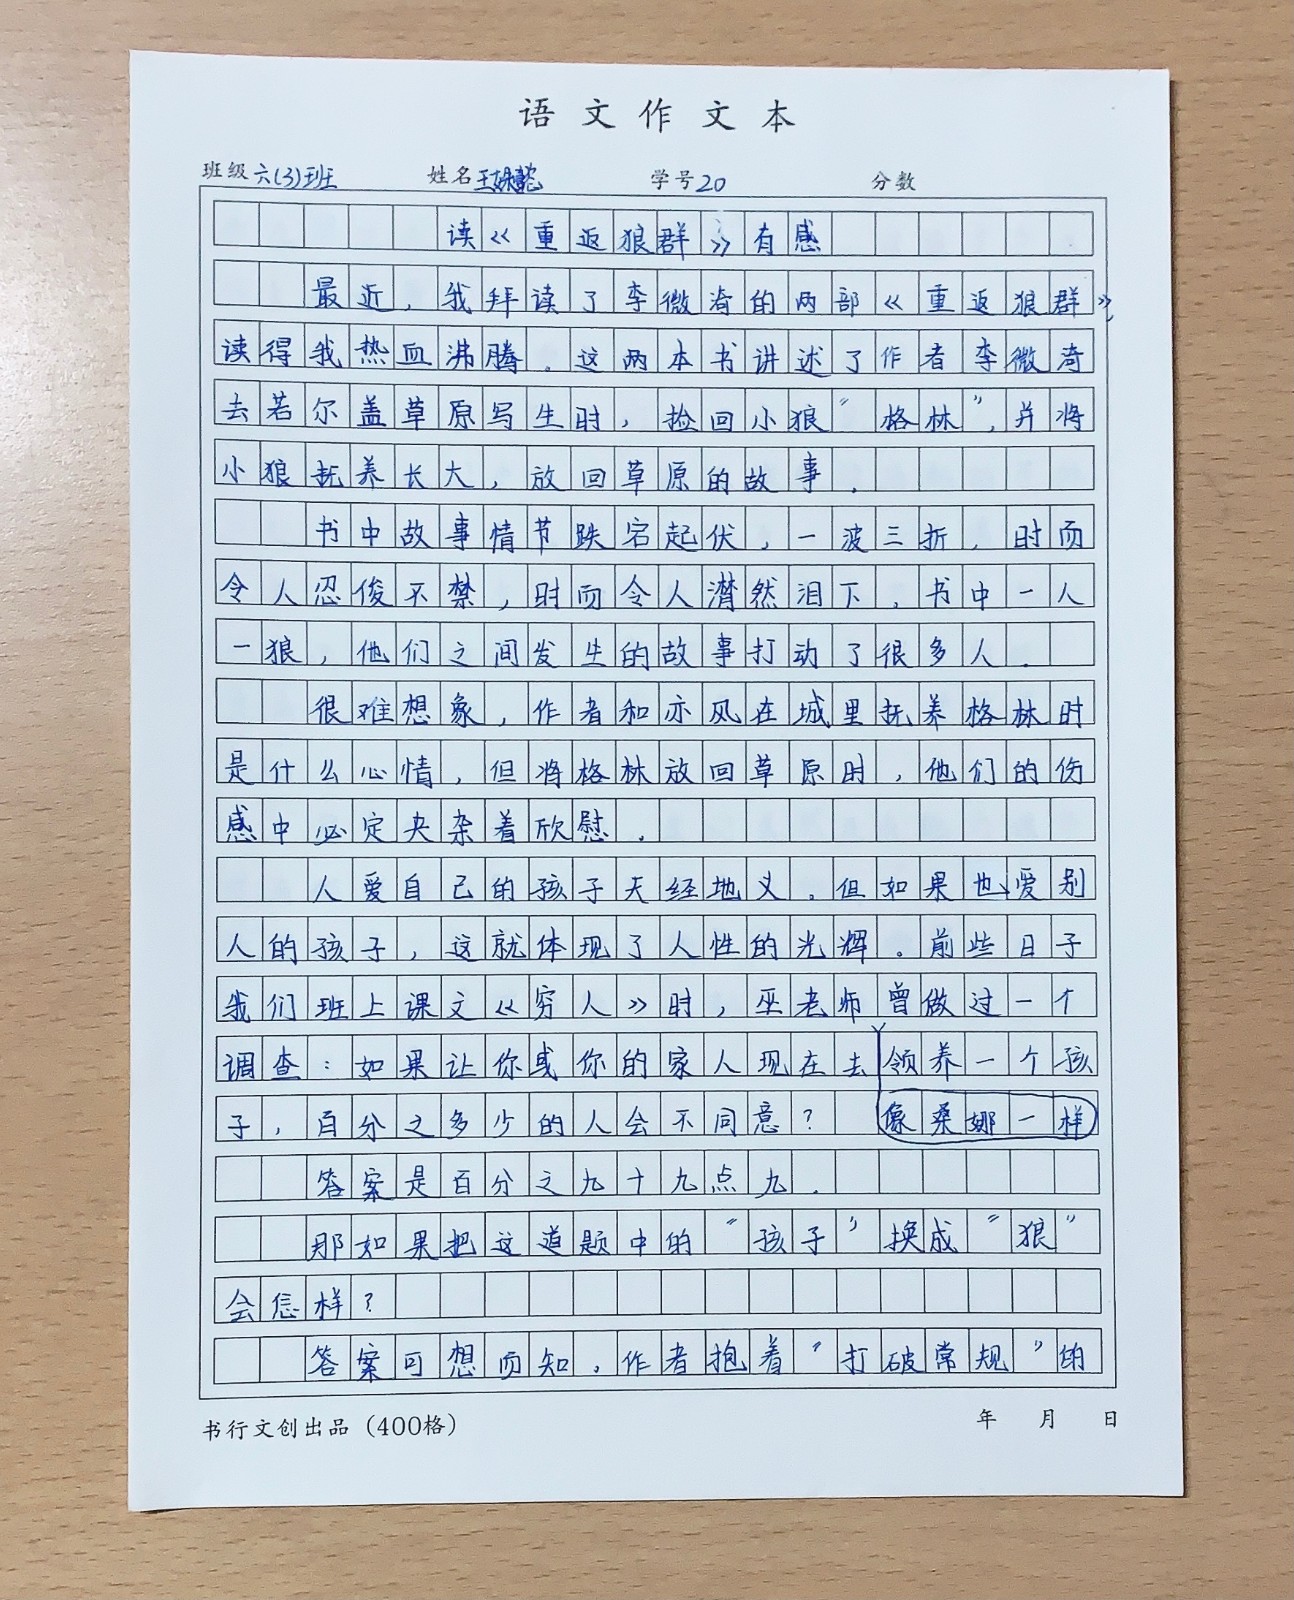 语文作文本
班级六(3)班 姓名王 学号20 分数
读《重返狼群》有感
最近，我拜读了李微漪的两部《重返狼群》，
读得我热血沸腾。这两本书讲述了作者李微漪
去若尔盖草原写生时，捡回小狼“格林”，并将
小狼抚养长大，放回草原的故事。
书中故事情节跌宕起伏，一波三折，时而
令人忍俊不禁，时而令人潸然泪下。书中一人
一狼，他们之间发生的故事打动了很多人。
很难想象，作者和亦风在城里抚养格林时
是什么心情，但将格林放回草原时，他们的伤
感中必定夹杂着欣慰。
人爱自己的孩子天经地义。但如果也爱别
人的孩子，这就体现了人性的光辉。前些日子
我们班上课文《穷人》时，巫老师曾做过一个
调查：如果让你或你的家人现在去领养一个孩
子，百分之多少的人会不同意？ 像桑娜一样
答案是百分之九十九点九。
那如果把这道题中的“孩子”换成“狼”
会怎样？
答案可想而知，作者抱着“打破常规”的
书行文创出品（400格） 年 月 日